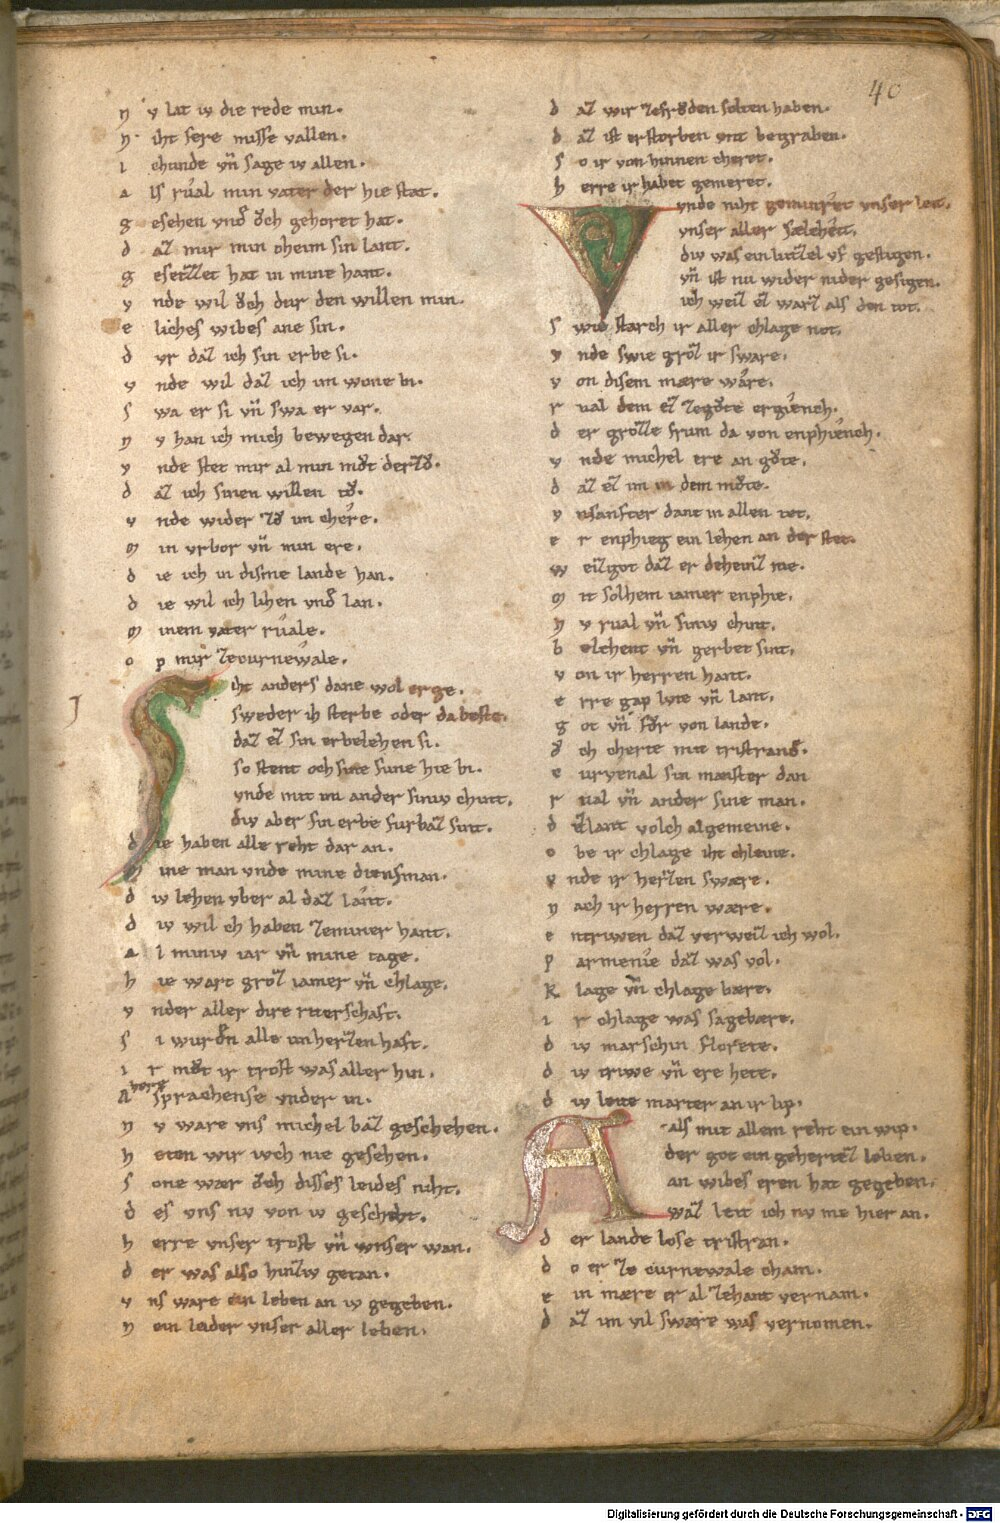 40
n v lat iv die rede min.
n iht sere misse vallen.
i chunde vn̄ sage iv allen.
a ls rv́al min vater der hie stat.
g esehen vnd̄ o̊ch gehoret hat.
d az mir min oheim sin lant.
g esetzzet hat in mine hant.
v nde wil o̊ch dur den willen min.
e liches wibes ane sin.
d vr daz ich sin erbe si.
v nde wil daz ich im wone bi.
s wa er si vn̄ swa er var.
n v han ich mich bewegen dar.
v nde stet mir al min mv̊t derzv̊.
d az ich sinen willen tv̊.
v nde wider zv̊ im chére.
m in vrbor vn̄ min ere.
d ie ich in disme lande han.
d ie wil ich lihen vnd̄ lan.
m inem vater rúale.
o p mir zecurnewale.
I
iht anders dane wol erge.
sweder ih sterbe oder da beste.
daz ez sin erbelehen si.
so stent och sine sune hie bi.
vnde mit im ander siniv chint.
div aber sin erbe furbaz sint.
d ie haben alle reht dar an.
m ine man vnde mine diensman.
d iv lehen vber al daz lánt.
d iv wil eh haben zeminer hant.
a l miniv iar vn̄ mine tage.
h ie wart groz iamer vn̄ chlage.
v nder aller dire riterschaft.
s i wurdn̄ alle unherzen haft.
i r mv̊t ir trost was aller hin.
A hora sprachense vnder in.
n v ware vns michel baz geschehen.
h eten wir iwch nie gesehen.
s one wær o̊ch disses leides niht.
d es vns nv von iv geschiht.
h erre vnser trost vn̄ wnser wan.
d er was also hinziv getan.
v ns ware ein leben an iv gegeben.
n ein leider vnser aller leben.
d az wir zefrv̊den solten haben.
d az ist erstorben vnt begraben.
s o ir von hinnen cheret.
h erre ir habet gemeret.
V vnde niht geminret vnser leit.
vnser aller sælcheit.
div was ein lutzzel vf gestigen.
vn̄ ist nu wider nider gesigen.
ich weiz ez warz als den tot.
s wie starch ir aller chlage not.
v nde swie groz ir sware.
v on disem mære wære.
r ual dem ez zegv̊te ergiench.
d er grozze frum da von enphiench.
v nde michel ere an gv̊te.
d az ez im in dem mv̊te.
v nsanfter dant in allen tet.
e r enphieg ein lehen an der stet.
w eizgot daz er deheinz nie.
m it solhem iamer enphie.
n v rual vn̄ siniv chint.
b elehent vn̄ gerbet sint.
v on ir herren hant.
e rre gap lvte vn̄ lant.
g ot vn̄ fv̊r von lande.
o̊ ch cherte mit tristrand̄.
c urvenal sin maister dan
r ual vn̄ ander sine man.
d ezlant volch algemeine.
o be ir chlage iht chleine.
v nde ir herzen swære.
n ach ir herren wære.
e ntriwen daz verweiz ich wol.
p armenie daz was vol.
k lage vn̄ chlage bære.
i r chlage was sagebære.
d iv marschin florete.
d iv triwe vn̄ ere hete.
d iv leite marter an ir lip.
A als mit allem reht ein wip.
der got ein gehertez leben.
an wibes eren hat gegeben.
waz leit ich nv me hier an.
d er lande lose tristran.
d o er ze curnewale cham.
e in mære er al zehant vernam.
d az im vil sware was vernomen.
Digitalisierung gefördert durch die Deutsche Forschungsgemeinschaft - DFG